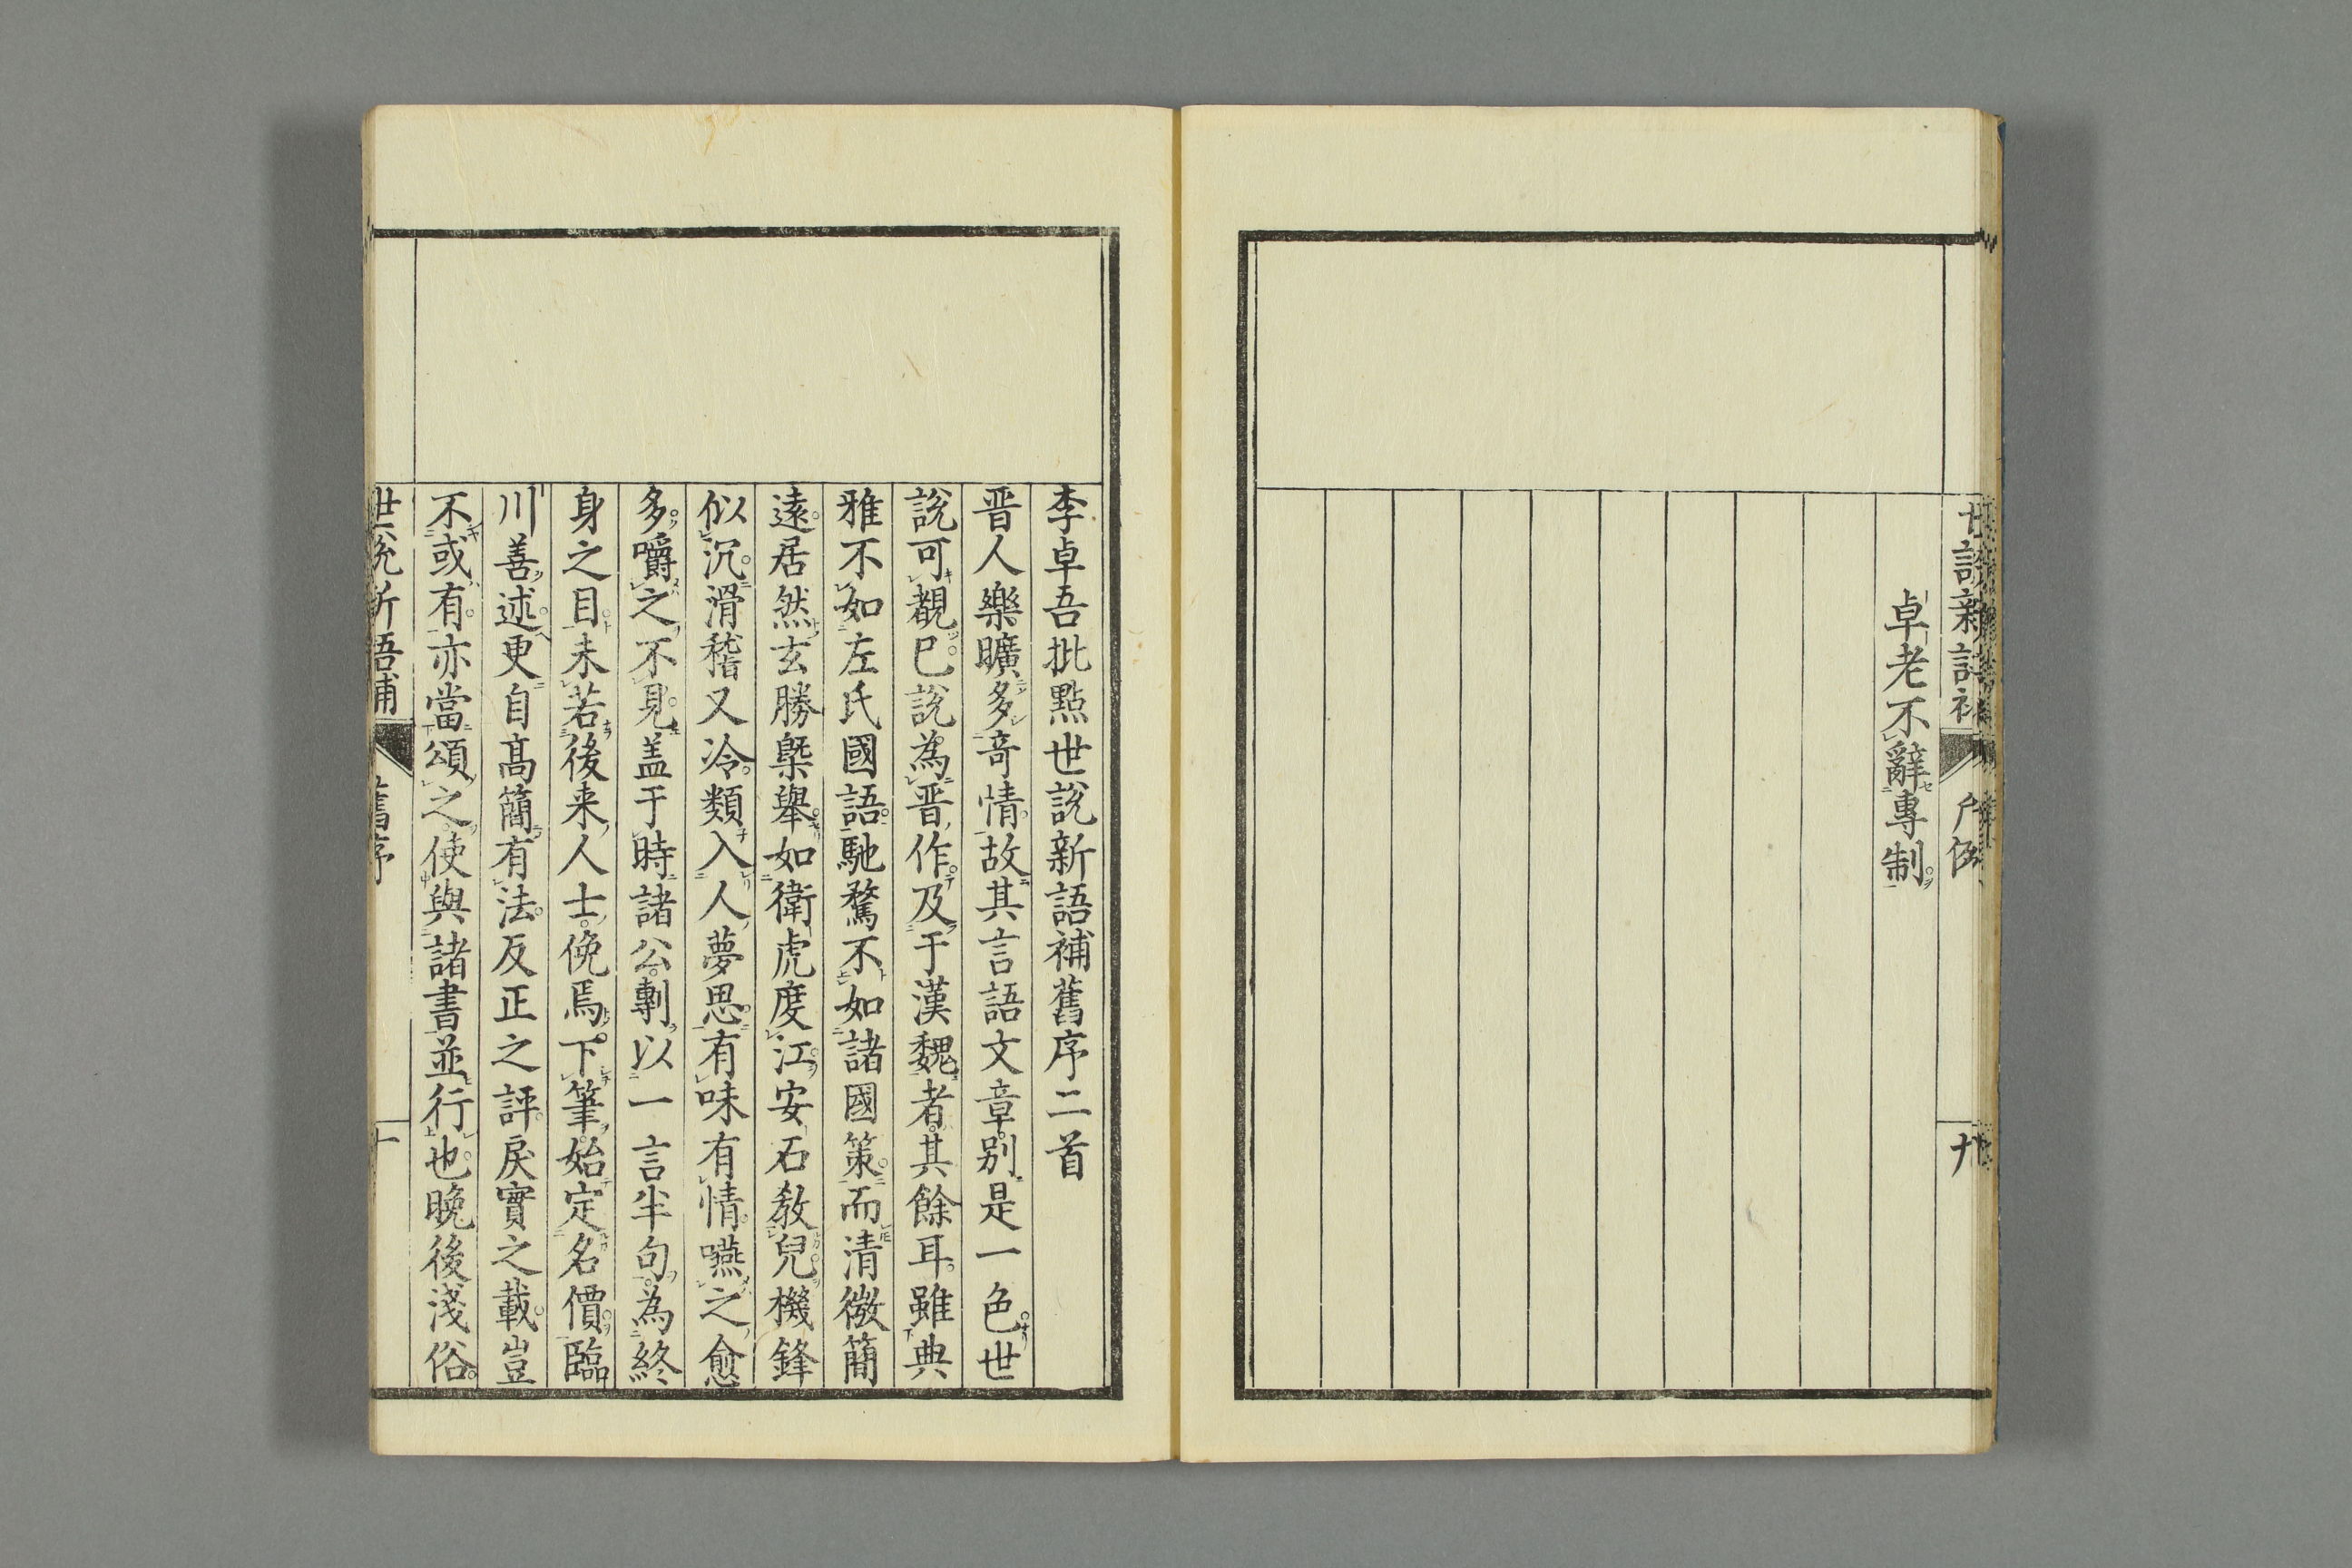 卓老不辭專制
李卓吾批點世說新語補舊序二首
晋人樂曠多竒情故其言語文章别是一色世
說可覩已說為晋作及于漢魏者其餘耳雖典
雅不如左氏國語馳騖不如諸國策而清微簡
遠居然玄勝槩舉如衛虎度江安石教兒機鋒
似沉滑稽又冷類入人夢思有味有情嚥之愈
多嚼之不見盖于時諸公剸以一言半句為終
身之目未若後来人士俛焉下筆始定名價臨
川善述更自高簡有法反正之評戾實之載豈
不或有亦當頌之使與諸書並行也晚後淺俗